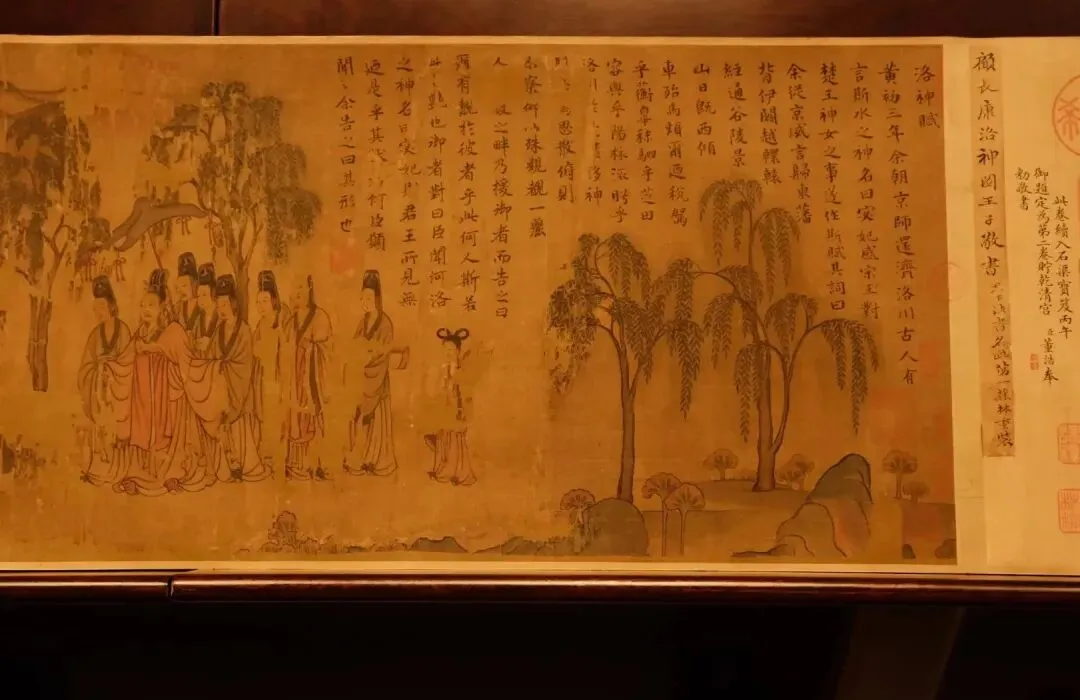 此卷續入石渠寶笈丙午
御題定為第二卷貯乾清宮 臣董誥奉
勅敬書
顧長康洛神圖王子敬書
洛神賦
黃初三年余朝京師還濟洛川古人有
言斯水之神名曰宓妃感宋玉對
楚王神女之事遂作斯賦其詞曰
余從京域言歸東藩
背伊闕越轘轅
經通谷陵景
山日既西傾
車殆馬煩爾迺稅駕
乎蘅皋秣駟乎芝田
容與乎陽林流眄乎
洛川於 神
思散俯則
未察仰以殊觀覩一麗
人 之畔乃援御者而告之曰
爾有覿於彼者乎此何人斯若
此之艷也御者對曰臣聞河洛
之神名曰宓妃則君王所見無
迺是乎其狀若何臣願
聞之余告之曰其形也